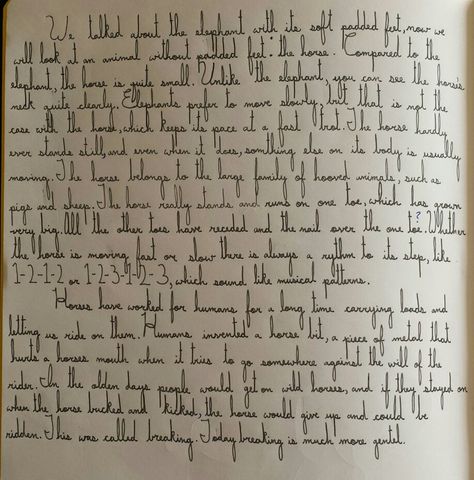 We talked about the elephant with its soft padded feet, now we
will look at an animal without padded feet: the horse. Compared to the
elephant, the horse is quite small. Unlike the elephant, you can see the horse's
neck quite clearly. Elephants prefer to move slowly, but that is not the
case with the horse, which keeps its pace at a fast trot. The horse hardly
ever stands still, and even when it does, somthing else on its body is usually
moving. The horse belongs to the large family of hooved animals, such as
pigs and sheep. The horse really stands and runs on one toe, which has grown
very big. All the other toes have receded and the nail over the one toe. Whether
?
the horse is moving fast or slow there is always a rythm to its step, like
1-2-1-2 or 1-2-3-1-2-3, which sound like musical patterns.
Horses have worked for humans for a long time carrying loads and
letting us ride on them. Humans invented a horse bit, a piece of metal that
hurts a horses mouth when it tries to go somewhere against the will of the
rider. In the olden days people would get on wild horses, and if they stayed on
when the horse bucked and kicked, the horse would give up and could be
ridden. This was called breaking. Today breaking is much more gentel.